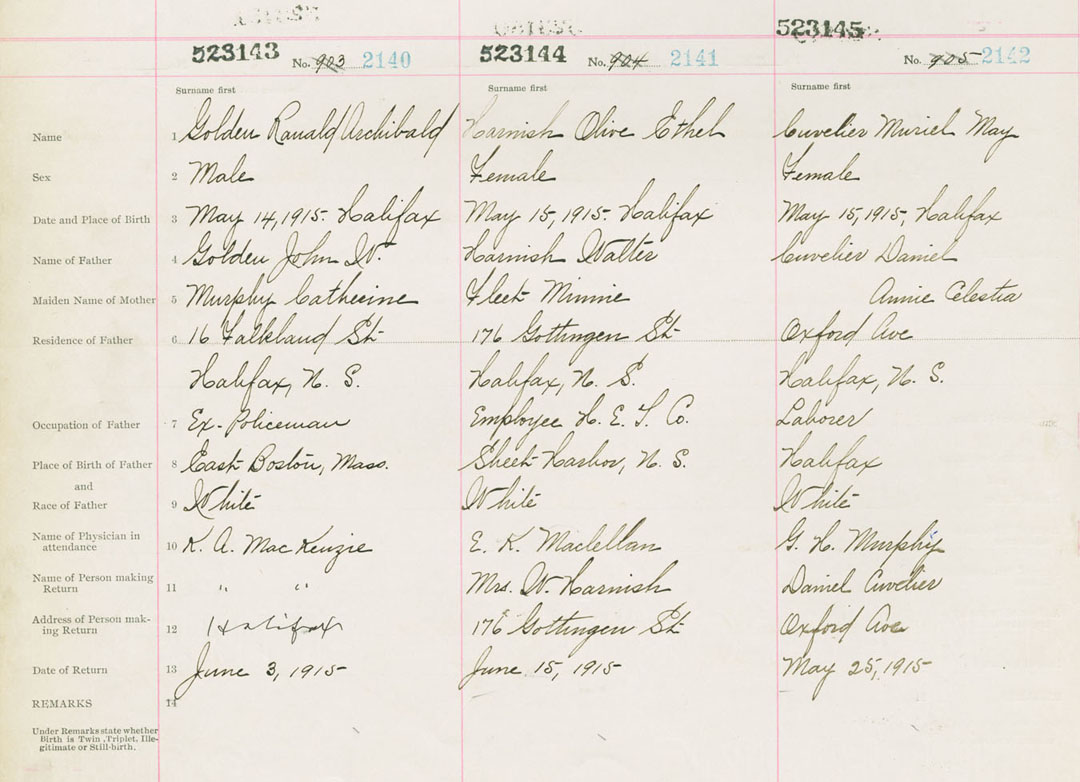 523143 No. 903 2140
523144 No. 904 2141
523145 No. 905 2142
Surname first Surname first Surname first
Name 1 Golden Ranald Archibald Harnish Olive Ethel Cuvelier Muriel May
Sex 2 Male Female Female
Date and Place of Birth 3 May 14, 1915. Halifax May 15, 1915. Halifax May 15, 1915, Halifax
Name of Father 4 Golden John W. Harnish Walter Cuvelier Daniel
Maiden Name of Mother 5 Murphy Catherine Fleet Minnie Annie Celestia
Residence of Father 6 16 Falkland St 176 Gottingen St Oxford Ave
Halifax, N. S. Halifax, N. S. Halifax, N. S.
Occupation of Father 7 Ex-Policeman Employee H. E. T. Co. Laborer
Place of Birth of Father 8 East Boston, Mass. Sheet Harbor, N. S. Halifax
and
Race of Father 9 White White White
Name of Physician in
attendance 10 K. A. MacKenzie E. K. Maclellan G. H. Murphy
Name of Person making
Return 11 " " Mrs. W. Harnish Daniel Cuvelier
Address of Person mak-
ing Return 12 Halifax 176 Gottingen St Oxford Ave
Date of Return 13 June 3, 1915 June 15, 1915 May 25, 1915
REMARKS 14
Under Remarks state whether
Birth is Twin, Triplet, Ille-
gitimate or Still-birth.